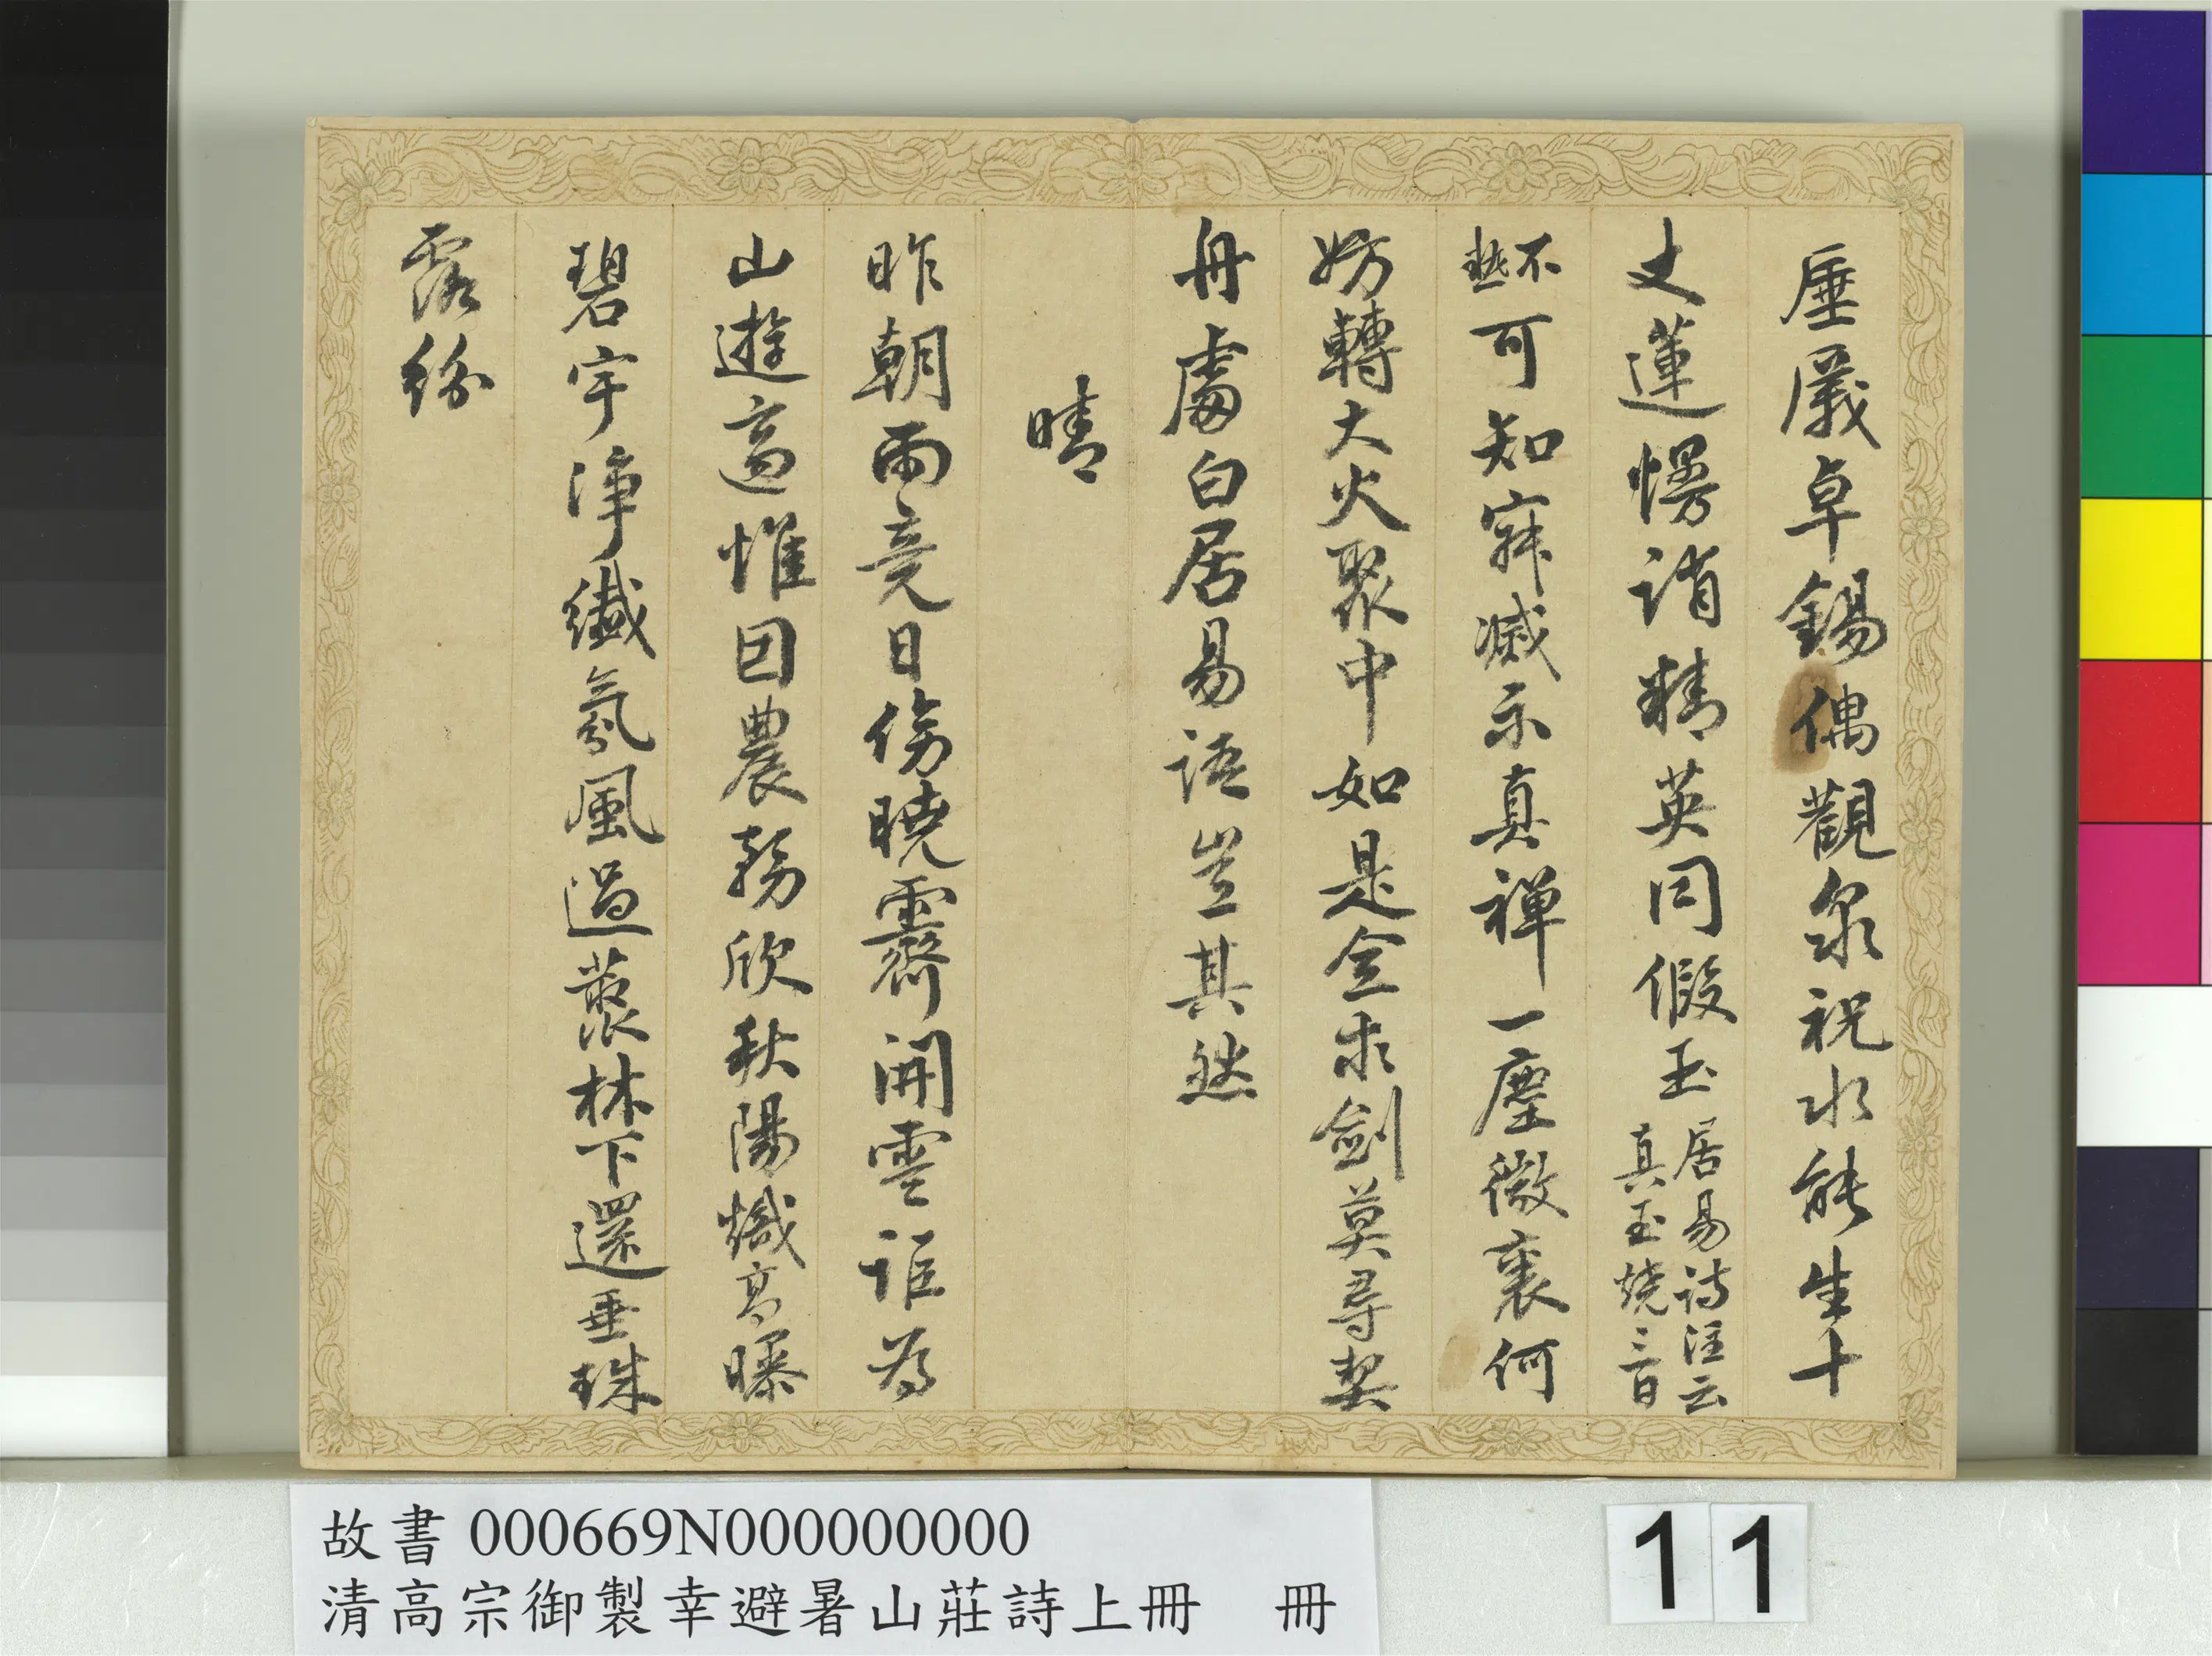 厓嚴卓錫偶觀泉祝水能生十
丈蓮愕誚精英同假玉居易詩注云
真玉燒三日
不
熱可知寂滅示真禪一塵微裏何
妨轉大火聚中如是全求劍莫尋契
舟處白居易語豈其然
晴
昨朝雨竟日傍曉霽開雲詎為
山遊適惟因農務欣秋陽熾高曝
碧宇淨纖氛風過蓺林下還垂珠
露紛
故書 000669N000000000
清高宗御製幸避暑山莊詩上冊 冊
11